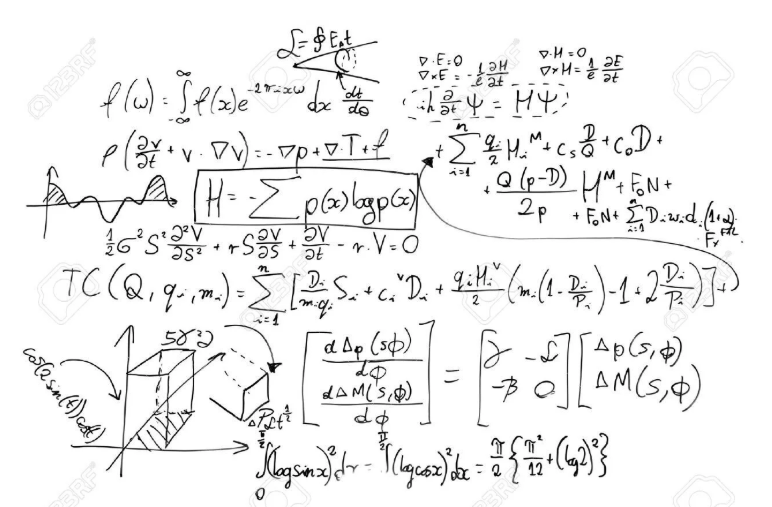 ℒ = ∮ E_n t
dt/dθ
∇·E=0
∇×E = -1/e ∂H/∂t
∇·H=0
∇×H = 1/e ∂E/∂t
f(ω) = ∫_{-∞}^{∞} f(x)e^{-2πixω} dx
iħ ∂/∂t Ψ = HΨ
ρ(∂v/∂t + v·∇v) = -∇p + ∇·T + f
+ ∑_{i=1}^{n} q_i/2 H_i^M + c_s D/Q + c_oD +
+ Q(p-D)/2p H^M + F_oN +
+ F_oN + ∑_{i=1}^{n} D_i w_i d_i
H = -∑ p(x) log p(x)
1/2 σ² S² ∂²V/∂S² + rS ∂V/∂S + ∂V/∂t - r·V = 0
TC(Q, q_i, m_i) = ∑_{i=1}^{n} [D_i/m_iq_i S_i + c_i^v D_i + q_iH_i^v/2 (m_i(1 - D_i/P_i) - 1 + 2 D_i/P_i)] +
cos(2sin(t))cos(t)
[dΔp(sφ)/dφ
dΔM(s,φ)/dφ] = [γ -ℒ
-β 0] [Δp(s,φ)
ΔM(s,φ)]
∫_0^{π/2} (log sin x)² dx = ∫^{π/2} (log cos x)² dx = π/2 {π²/12 + (log2)²}